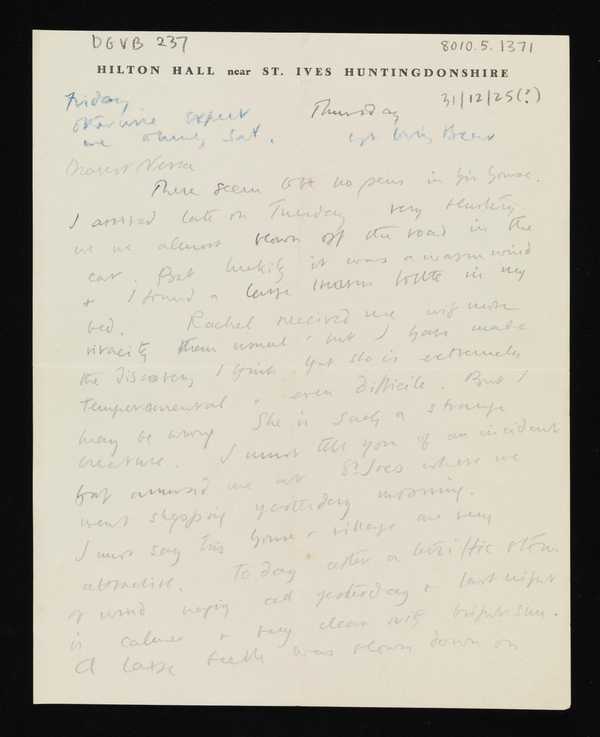 DGVB 237
8010.5.1371
HILTON HALL near ST. IVES HUNTINGDONSHIRE
31/12/25(?)
Friday
Thursday
Otherwise expect
me Sat.
Dearest Nessa
There seem to be no pens in this house.
I arrived late on Tuesday very
we were almost blown off the road in the
car. But luckily it was a warm wind
& I found a large warm bottle in my
bed. Rachel received me with more
vivacity than usual, but I have made
the discovery I think that she is extremely
temperamental & even difficile. But I
may be wrong. She is such a strange
creature. I must tell you of an incident
that amused me at St Ives where we
went shopping yesterday morning.
I must say this house & village are very
attractive. Today after a terrific storm
of wind all yesterday & last night
is calmer & very clear with bright sun.
A large was blown down on